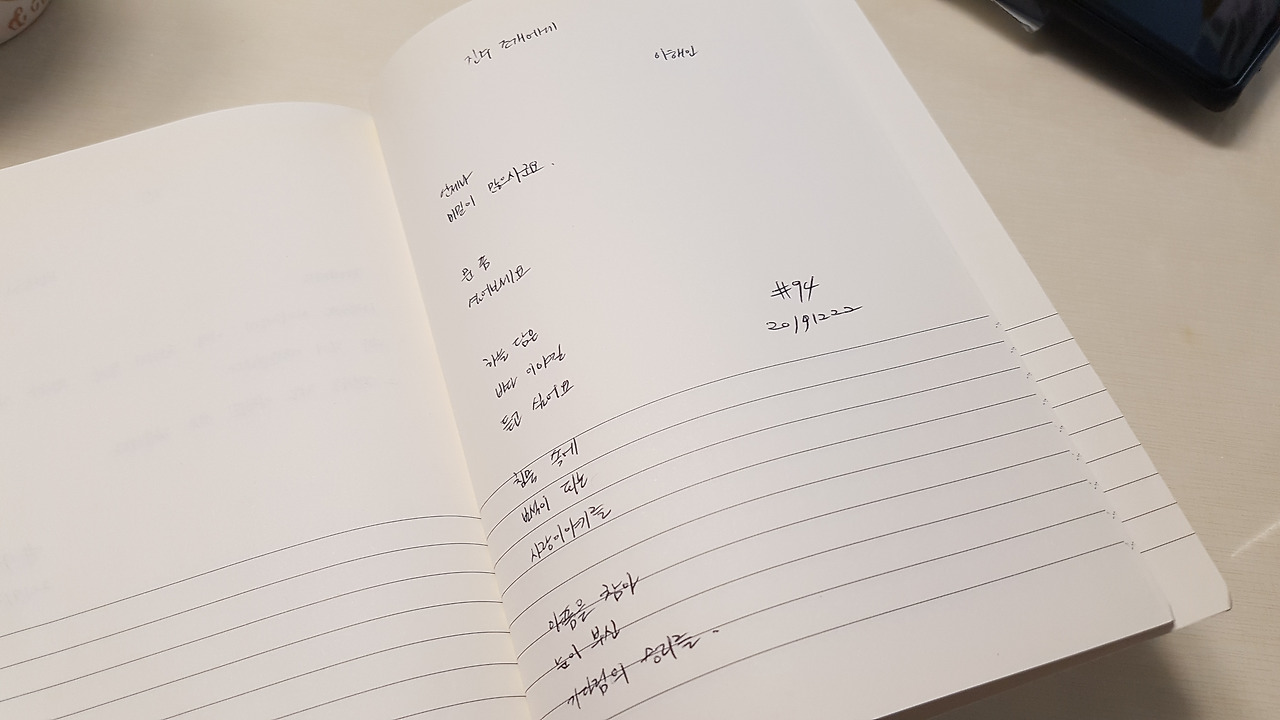 진주 조개에게
이해인
언제나
비밀이 많으시군요.
문 좀
열어보세요
하늘 담은
바다 이야기
듣고 싶어요
침묵 속에
보석이 되는
사랑이야기를
아픔을 참아
눈이 부신
기다림의 승리를.
#94
20191222